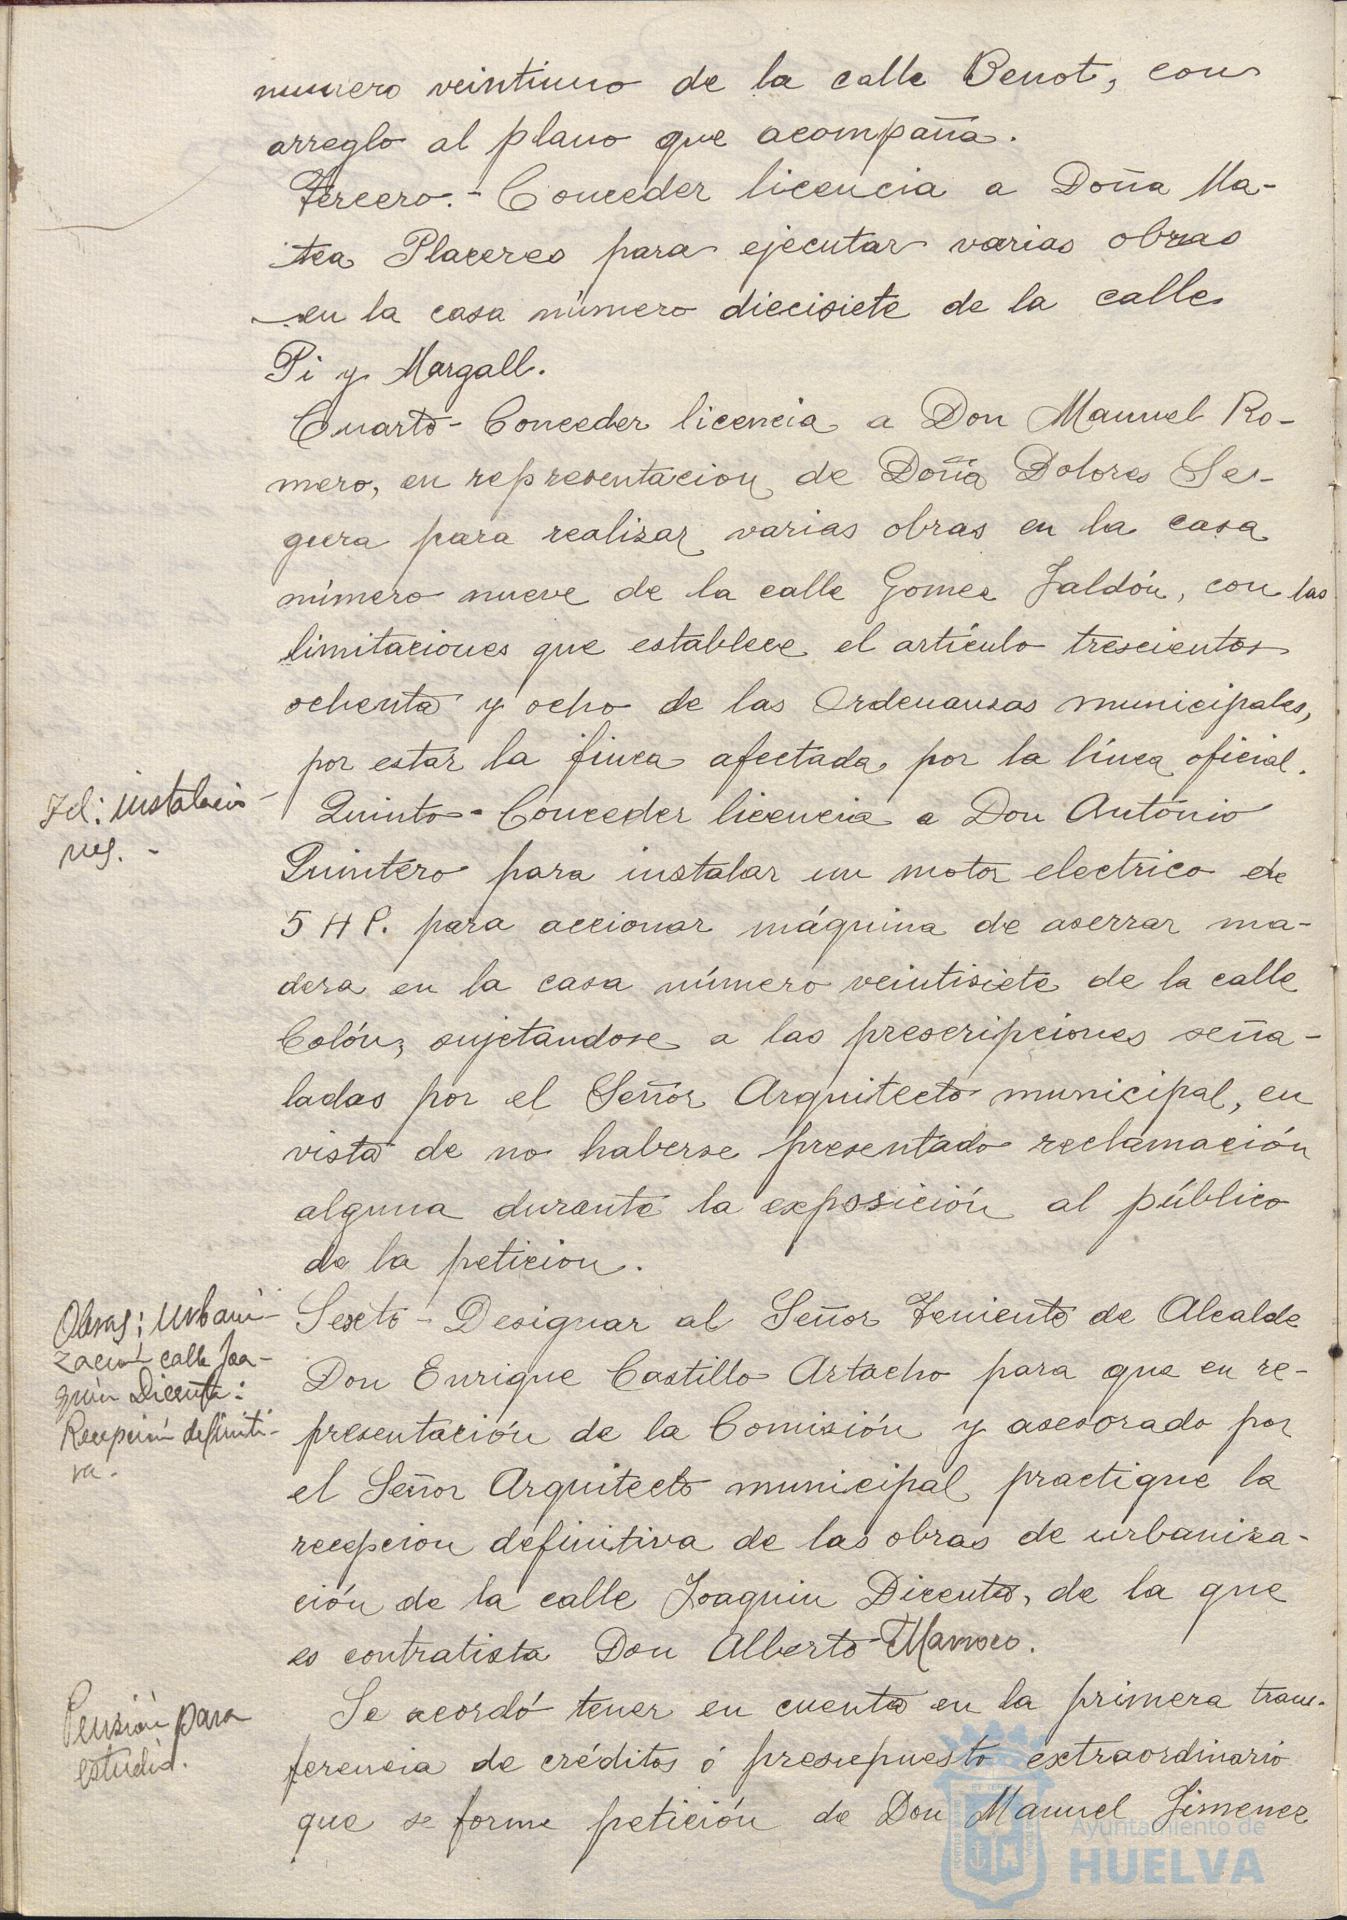 numero veintiuno de la calle Benot, con
arreglo al plano que acompaña.
Tercero.- Conceder licencia a Doña Ma-
tea Placeres para ejecutar varias obras
en la casa número diecisiete de la calle
Pi y Margall.
Cuarto- Conceder licencia a Don Manuel Ro-
mero, en representacion de Doña Dolores Se-
guera para realizar varias obras en la casa
número nueve de la calle Gomez Jaldón, con las
limitaciones que establece el artículo trescientos
ochenta y ocho de las Ordenanzas municipales,
por estar la finca afectada por la línea oficial.
Id: instalacio-
nes.-
Quinto- Conceder licencia a Don Antonio
Quintero para instalar un motor electrico de
5 HP. para accionar máquina de aserrar ma-
dera en la casa número veintisiete de la calle
Colón, sujetandose a las prescripciones seña-
ladas por el Señor Arquitecto municipal, en
vista de no haberse presentado reclamación
alguna durante la exposición al público
de la peticion.
Obras; urbani-
zación calle Joa-
quin Dicenta:
Recepción definiti-
va.
Sexto- Designar al Señor Teniente de Alcalde
Don Enrique Castillo Artacho para que en re-
presentación de la Comisión y asesorado por
el Señor Arquitecto municipal practique la
recepcion definitiva de las obras de urbaniza-
ción de la calle Joaquin Dicenta, de la que
es contratista Don Alberto
Pensión para
estudio.
Se acordó tener en cuenta en la primera trans-
ferencia de créditos ó presupuesto extraordinario
que se forme petición de Don Manuel Jimenez
Ayuntamiento de
HUELVA